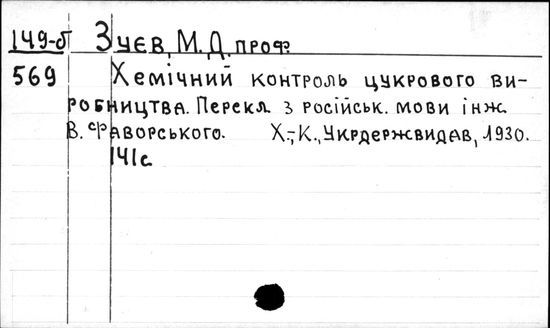 149-б Зуєв, М. Д. проф.
569 Хемічний контроль цукрового ви-
робництва. Перекл. з російськ. мови інж.
В. Фаворського. Х.-К., Укрдержвидав, 1930.
141с